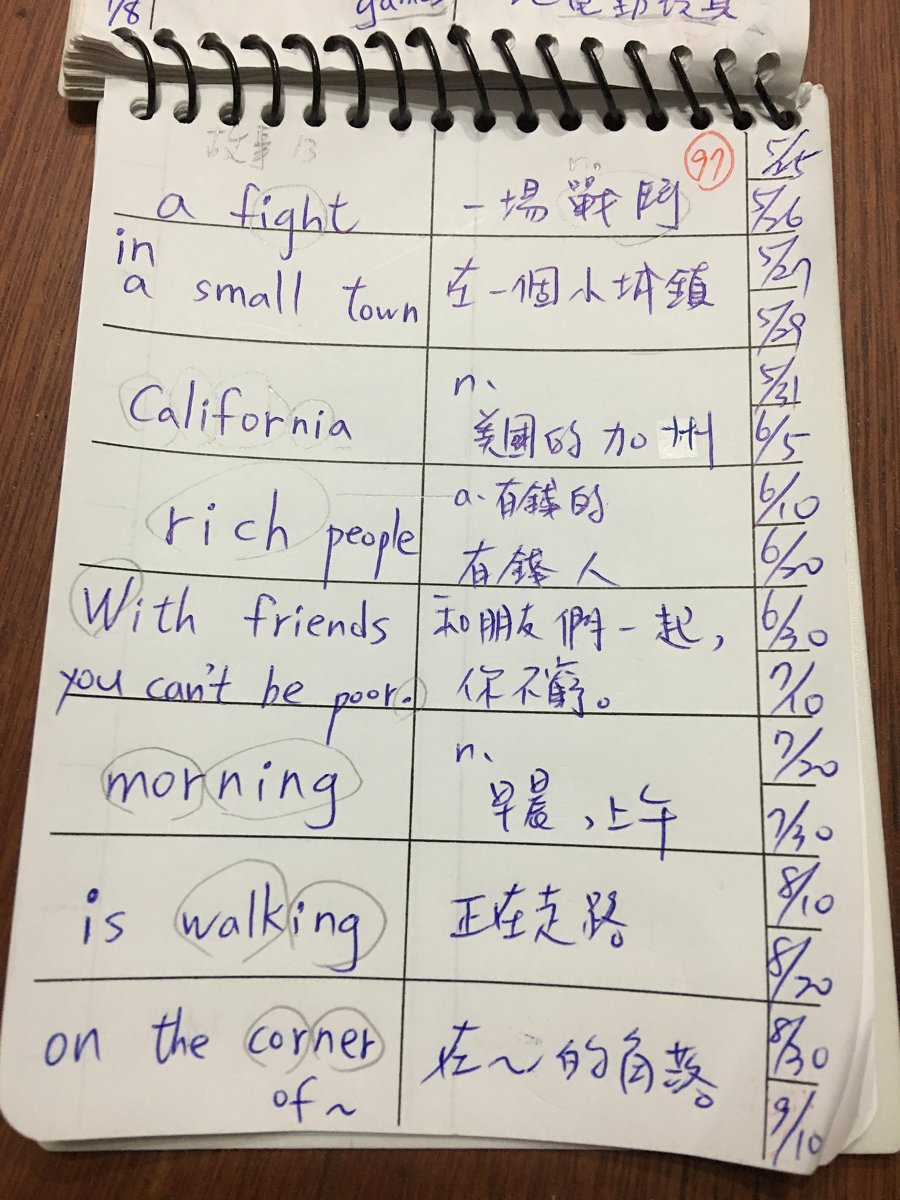 1/8 games
故事13
97
a fight
n.
一場戰鬥
in
a small town
在一個小城鎮
California
n、
美國的加州
rich people
a. 有錢的
有錢人
With friends
you can't be poor.
和朋友們一起，
你不窮。
morning
n、
早晨，上午
is walking
正在走路。
on the corner
of ~
在～的角落。
5/25
5/26
5/27
5/29
5/31
6/5
6/10
6/20
6/30
7/10
7/20
7/30
8/10
8/20
8/30
9/10